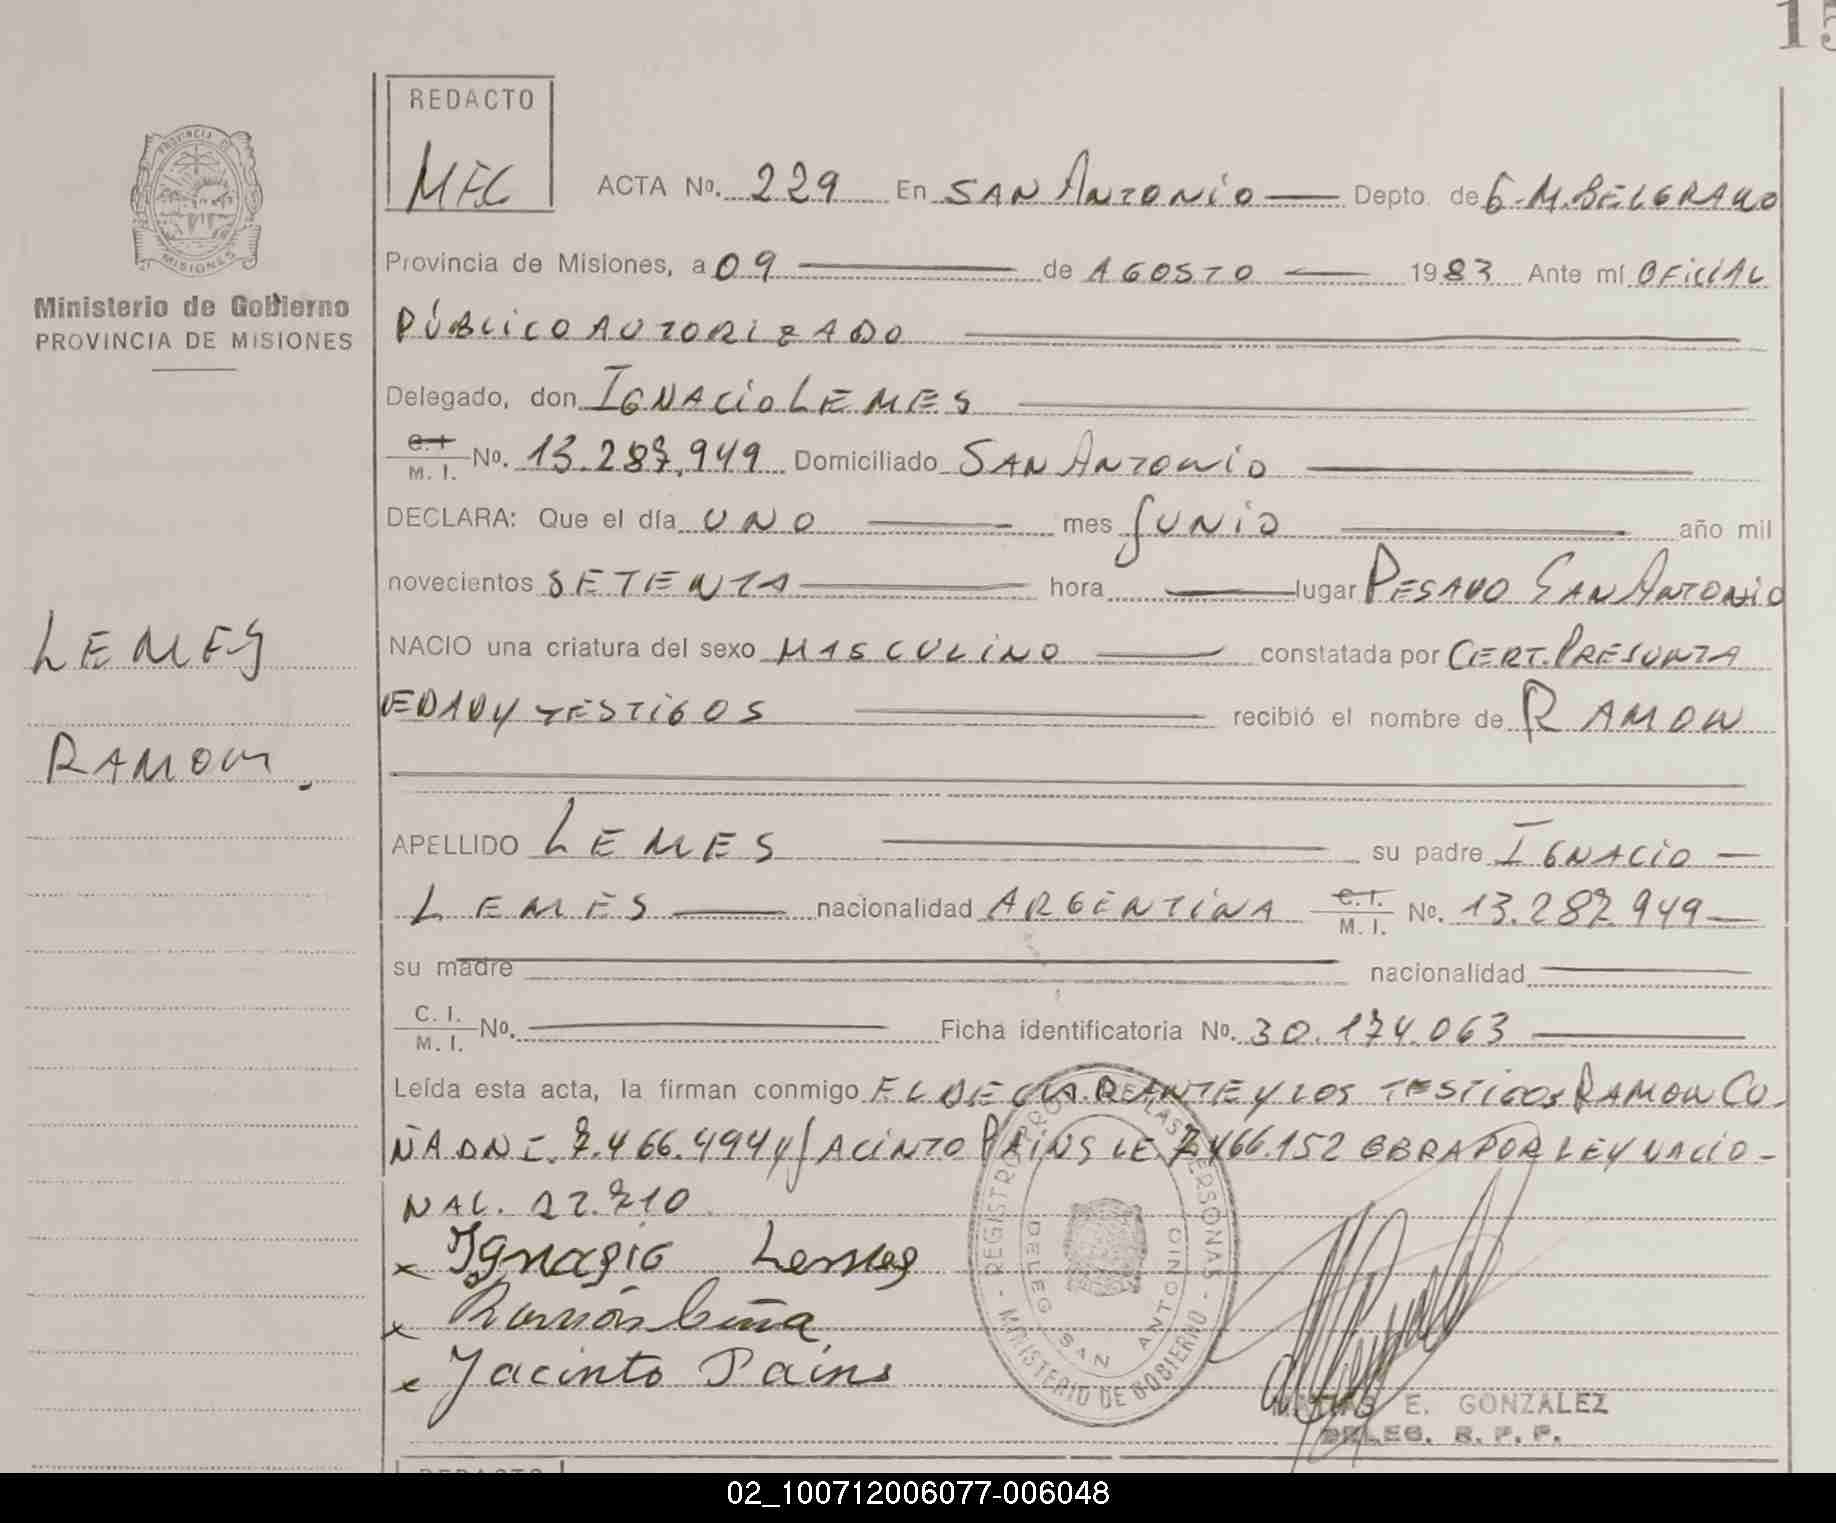 15
REDACTO
MEG
PROVINCIA DE
MISIONES
Ministerio de Gobierno
PROVINCIA DE MISIONES
ACTA No. 229 En SAN ANTONIO Depto. de G. M. BELGRANO
Provincia de Misiones, a 09 de AGOSTO 1983 Ante mí OFICIAL
PÚBLICO AUTORIZADO
Delegado, don IGNACIO LEMES
C. I. M. I. No. 13.287.949 Domiciliado SAN ANTONIO
DECLARA: Que el día UNO mes JUNIO año mil
novecientos SETENTA hora lugar PESADO SAN ANTONIO
NACIO una criatura del sexo MASCULINO constatada por CERT. PRESUNTA
EDAD Y TESTIGOS recibió el nombre de RAMON
LEMES
RAMON.
APELLIDO LEMES su padre IGNACIO
LEMES nacionalidad ARGENTINA C. I. M. I. No. 13.287.949
su madre nacionalidad
C. I. M. I. No. Ficha identificatoria No. 30.174.063
Leída esta acta, la firman conmigo EL DECLARANTE Y LOS TESTIGOS RAMON CU-
ÑA DNI. 7.466.494 y JACINTO PAINS LE. 7.466.152 OBRA POR LEY NACIO-
NAL. 22.710
x Ignasio Lemes
x Ramón Cuña
x Jacinto Pains
REGISTRO PROV. DE LAS PERSONAS
MINISTERIO DE GOBIERNO
DELEG SAN ANTONIO
E. GONZALEZ
DELEG. R. P. P.
REDACTO
02_100712006077-006048